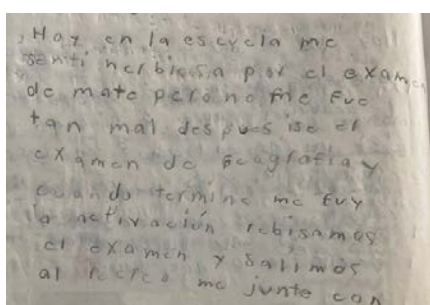 Hoy en la escuela me
senti nerbiosa por el examen
de mate pero no me fue
tan mal despues ise el
examen de geografia y
cuando termine me fuy
a activación rebisamos
el examen y salimos
al receo me junte con